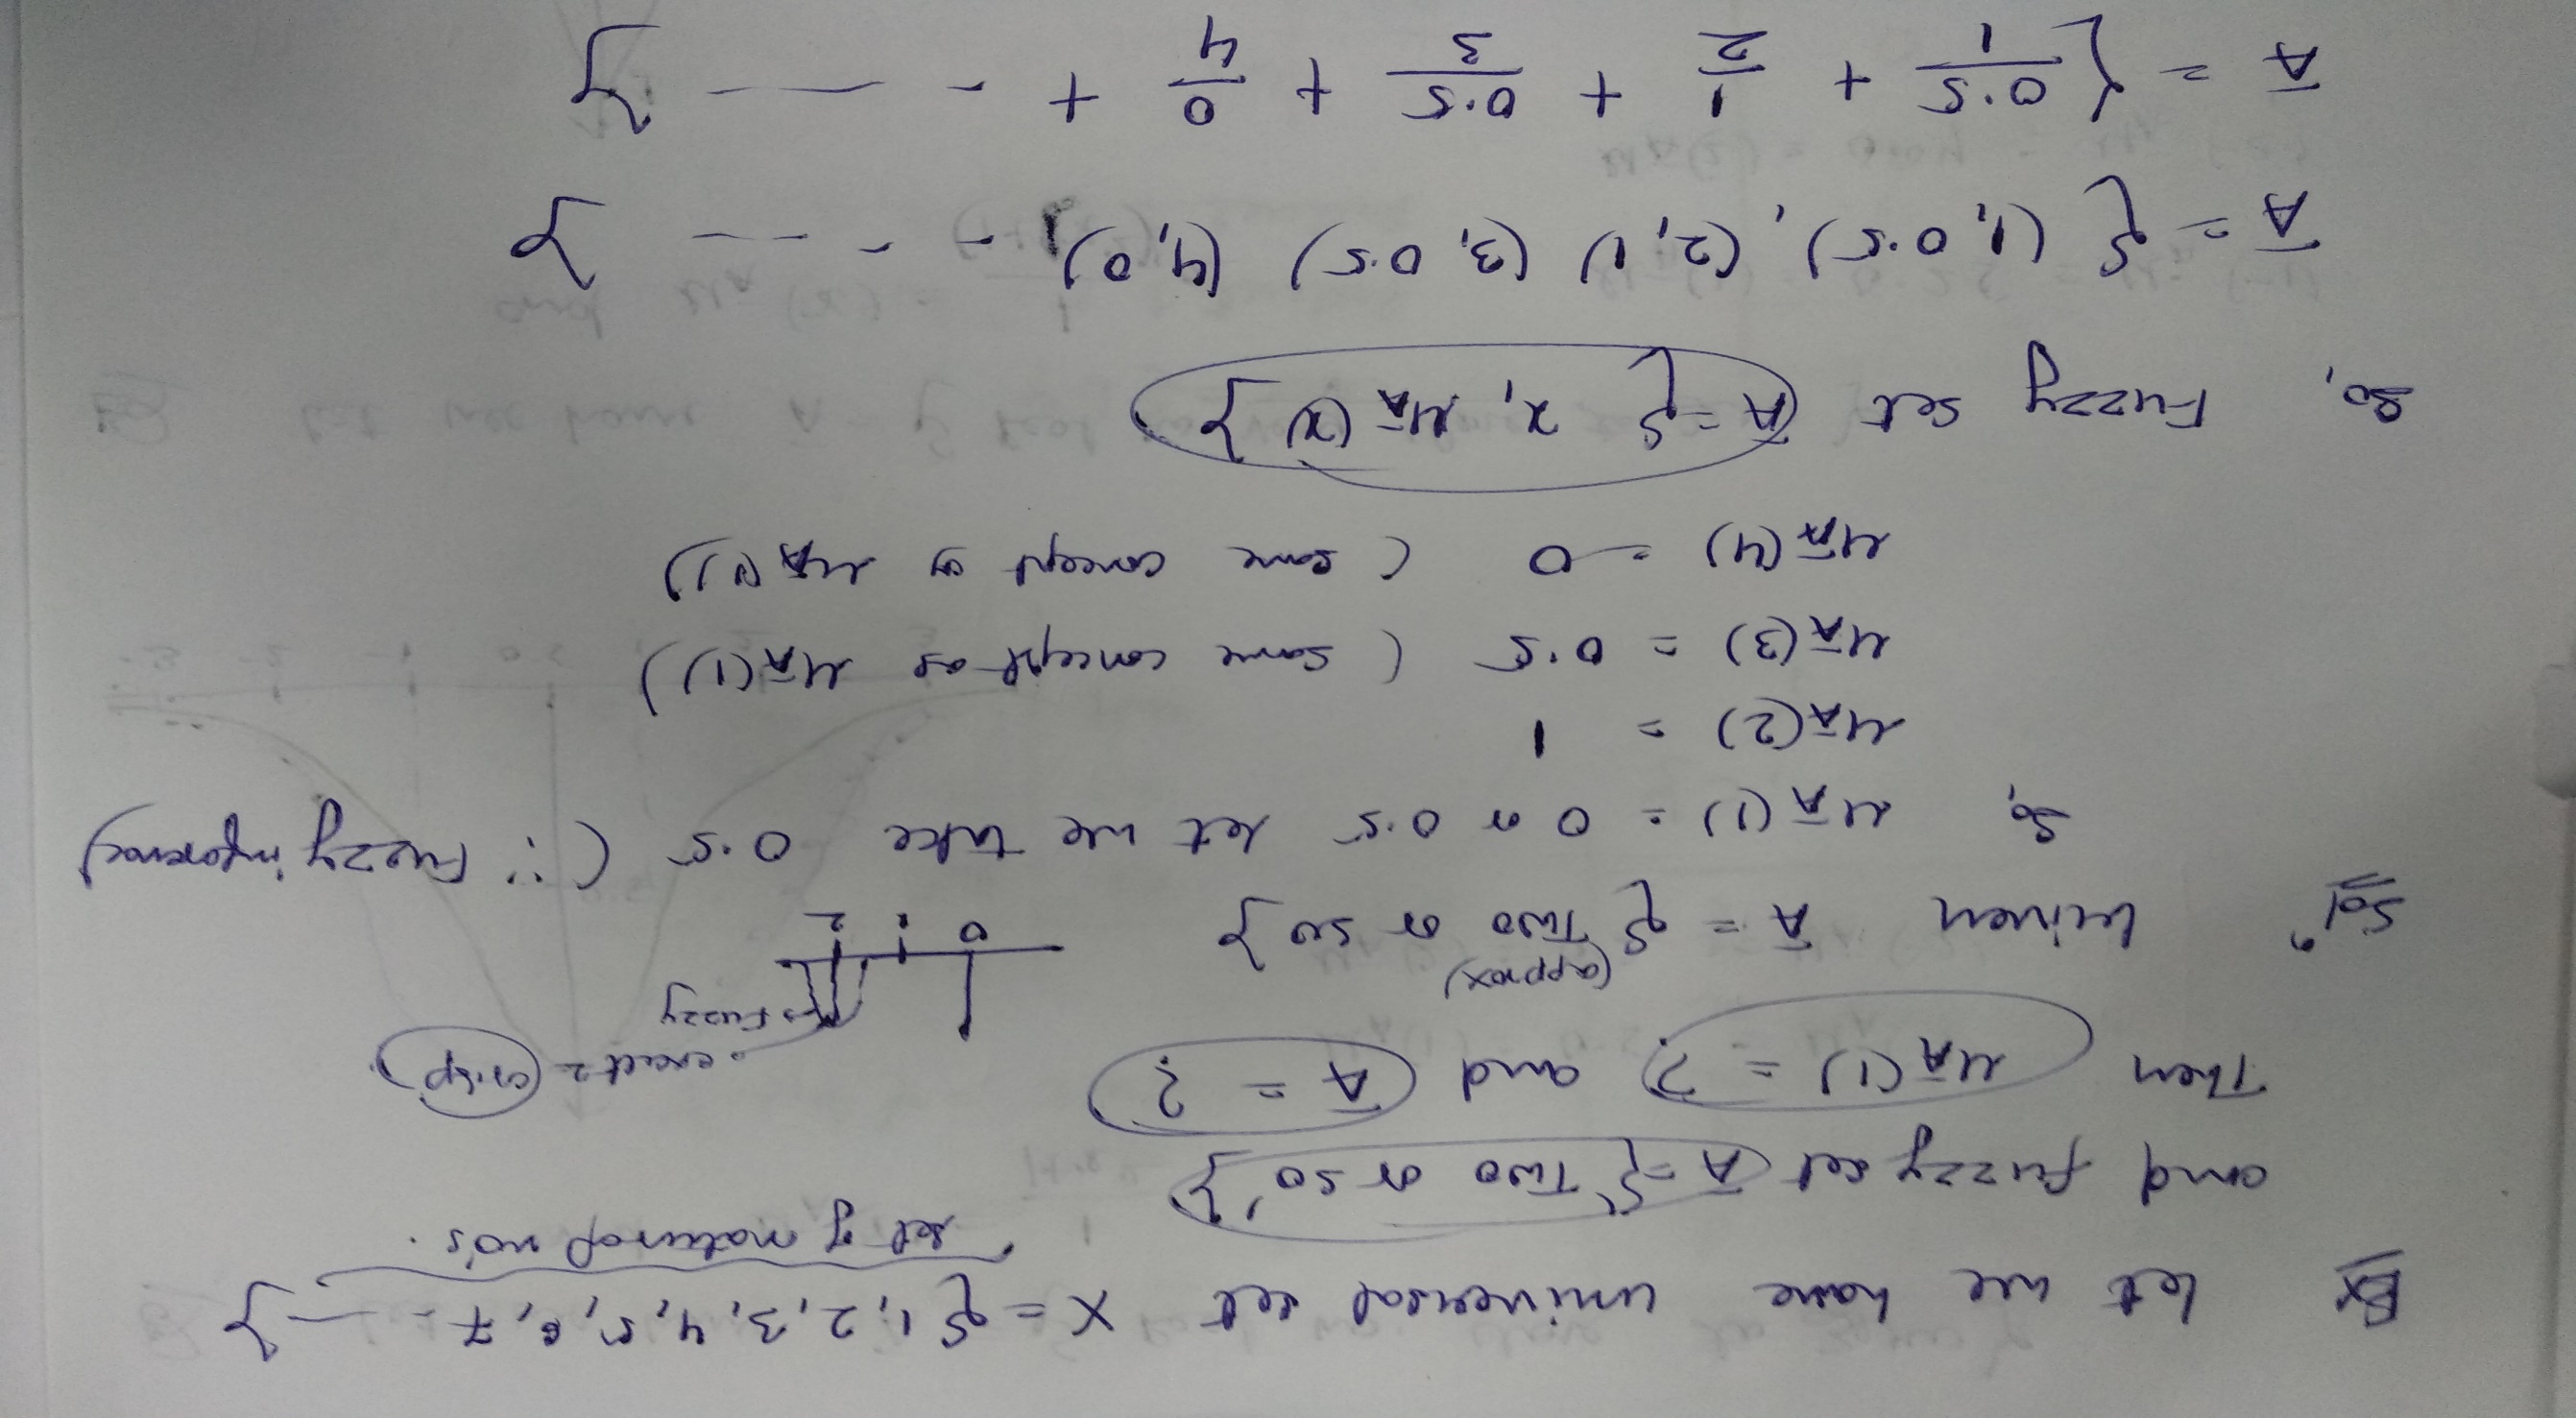 Ex let we have universal set X = {1, 2, 3, 4, 5, 6, 7 - - - }
set of natural no's.
and fuzzy set A = {'Two or so'}
Then μA(1) = ? and A = ?
exact 2 = crisp
Fuzzy
(approx)
Solⁿ Given A = {Two or so}
0 1 2
So, μA(1) = 0 or 0.5 let we take 0.5 (∵ Fuzzy
μA(2) = 1
μA(3) = 0.5 (same concept as μA(1))
μA(4) = 0 (same concept of μA(1))
So, Fuzzy set A = { x, μA(x) }
A = { (1, 0.5), (2, 1) (3, 0.5) (4, 0) - - - - - }
A = { 0.5/1 + 1/2 + 0.5/3 + 0/4 + - - - }